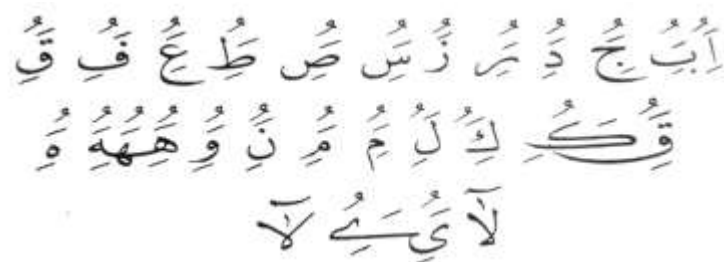 اَِبَُِبَُِ جَُِ دَُِ رَُِ زَُ سَُِ صَُِ طَُِ عَُِ فَُِ قَُِ
قَُِ كَُِ كَُِ لَُِ مَُِ مَُِ نَُِ وَُِ هَُِهَُِهَُِ هَُِ
لآ يَُِ ےَُِ لآ